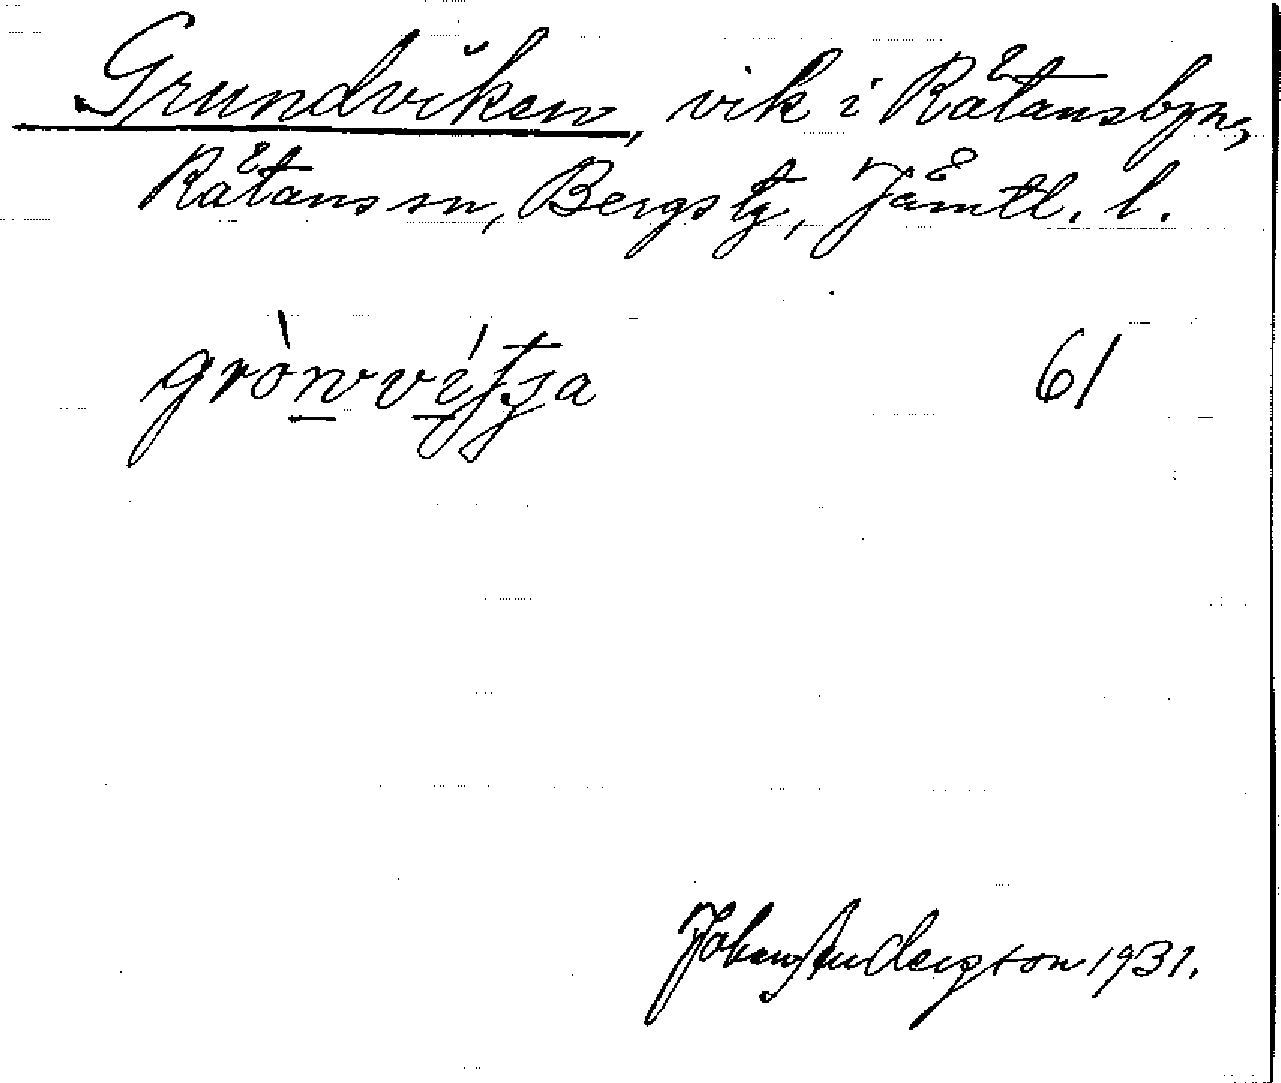 Grundviken, vik i Rätansbyn,
Rätans sn, Bergs tg, Jämtl. l.
61
Johan Anderson 1931.